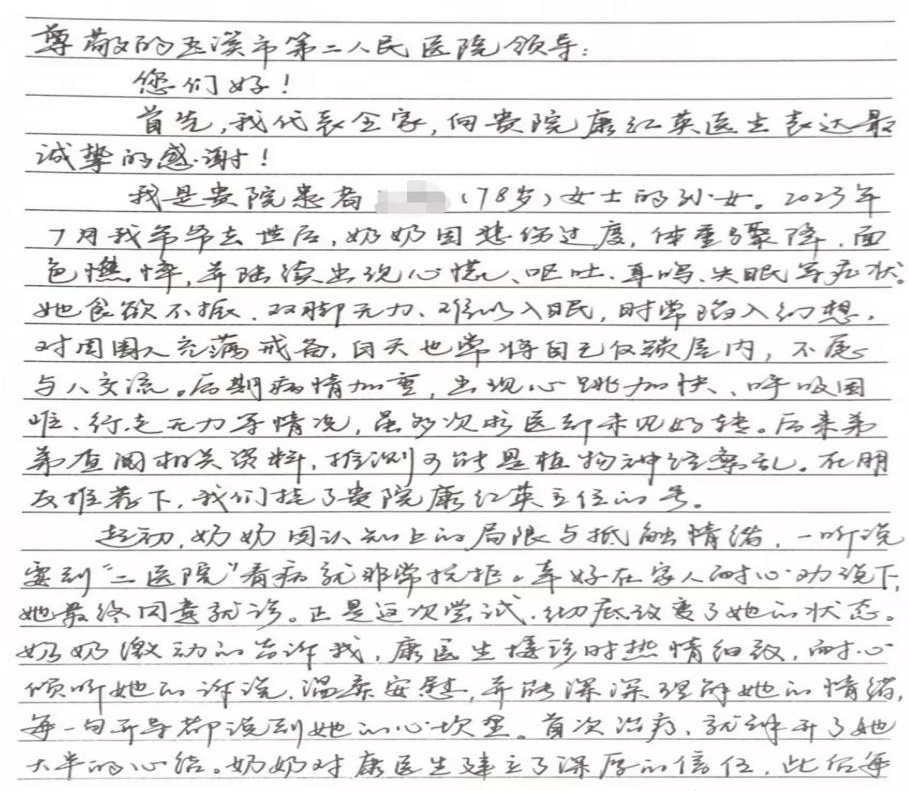 尊敬的玉溪市第二人民医院领导：
您们好！
首先，我代表全家，向贵院康红英医生表达最
诚挚的感谢！
我是贵院患者（78岁）女士的孙女。2023年
7月我爷爷去世后，奶奶因悲伤过度，体重骤降、面
色憔悴，并陆续出现心慌、呕吐、耳鸣、失眠等症状。
她食欲不振、双脚无力、难以入眠，时常陷入幻想，
对周围人充满戒备，白天也常将自己反锁屋内，不愿
与人交流。后期病情加重，出现心跳加快、呼吸困
难、行走无力等情况，虽多次求医却未见好转。后来弟
弟查阅相关资料，推测可能是植物神经紊乱。在朋
友推荐下，我们挂了贵院康红英主任的号。
起初，奶奶因认知上的局限与抵触情绪，一听说
要到“二医院”看病就非常抗拒。幸好在家人耐心劝说下，
她最终同意就诊。正是这次尝试，彻底改变了她的状态。
奶奶激动的告诉我，康医生接诊时热情细致，耐心
倾听她的诉说，温柔安慰，并能深深理解她的情绪，
每一句开导都说到她的心坎里。首次治疗，就解开了她
大半的心结。奶奶对康医生建立了深厚的信任，此后每